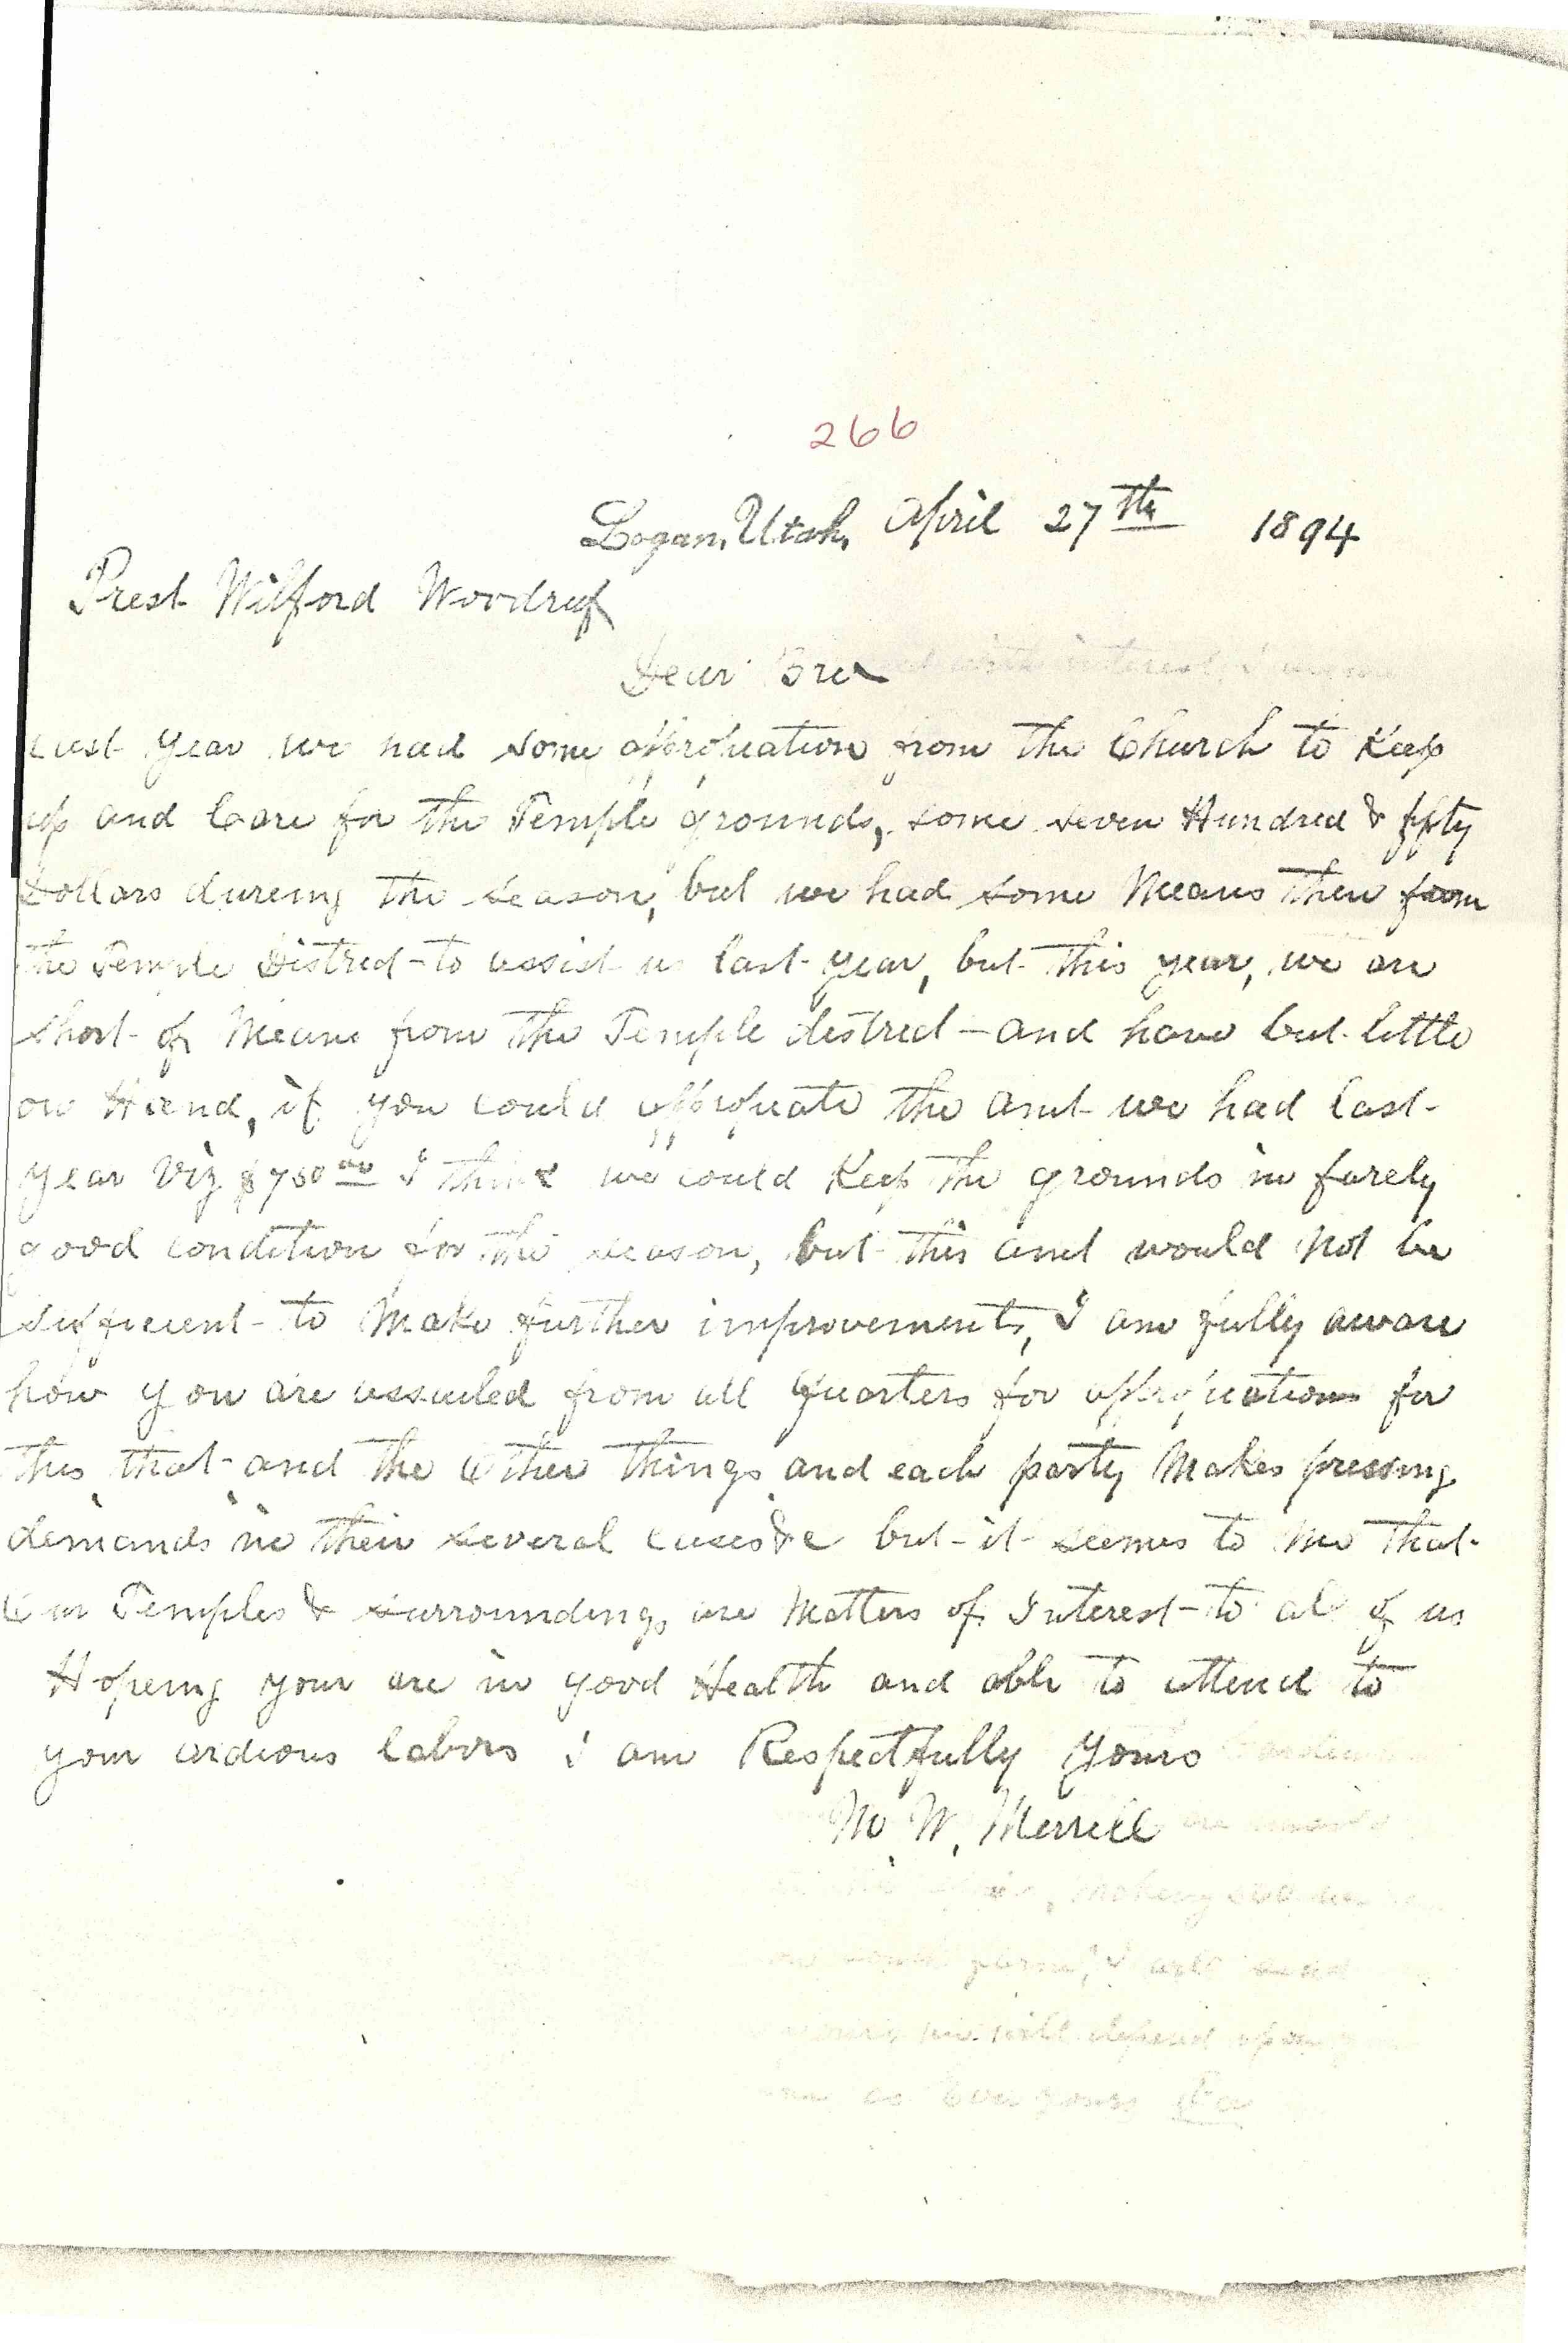 266
Logan, Utah, April 27th 1894
Prest Wilford Woodruff
Dear Bro
Last Year we had some appropriation from the Church to Keep
up and Care for the Temple grounds, some seven Hundred & fifty
Dollars dureing the season, but we had some Means then from
the Temple District to assist us last year, but this year, we are
short of Means from the Temple district and have but little
on Hand, if you could appropriate the amt we had last
year Viz $750.00 I think we could Keep the grounds in farely
good condition for the season, but this amt would Not be
sufficient to Make further improvements, I am fully aware
how you are assailed from all Quarters for appropriations for
this, that and the Other things and each party Makes pressing
demands in their several cases &c but it seems to Me that
Our Temples & surroundings are Matters of Interest to al of us
Hopeing your are in good Health and able to attend to
your ardious labors I am Respectfully Yours
M. W. Merrill